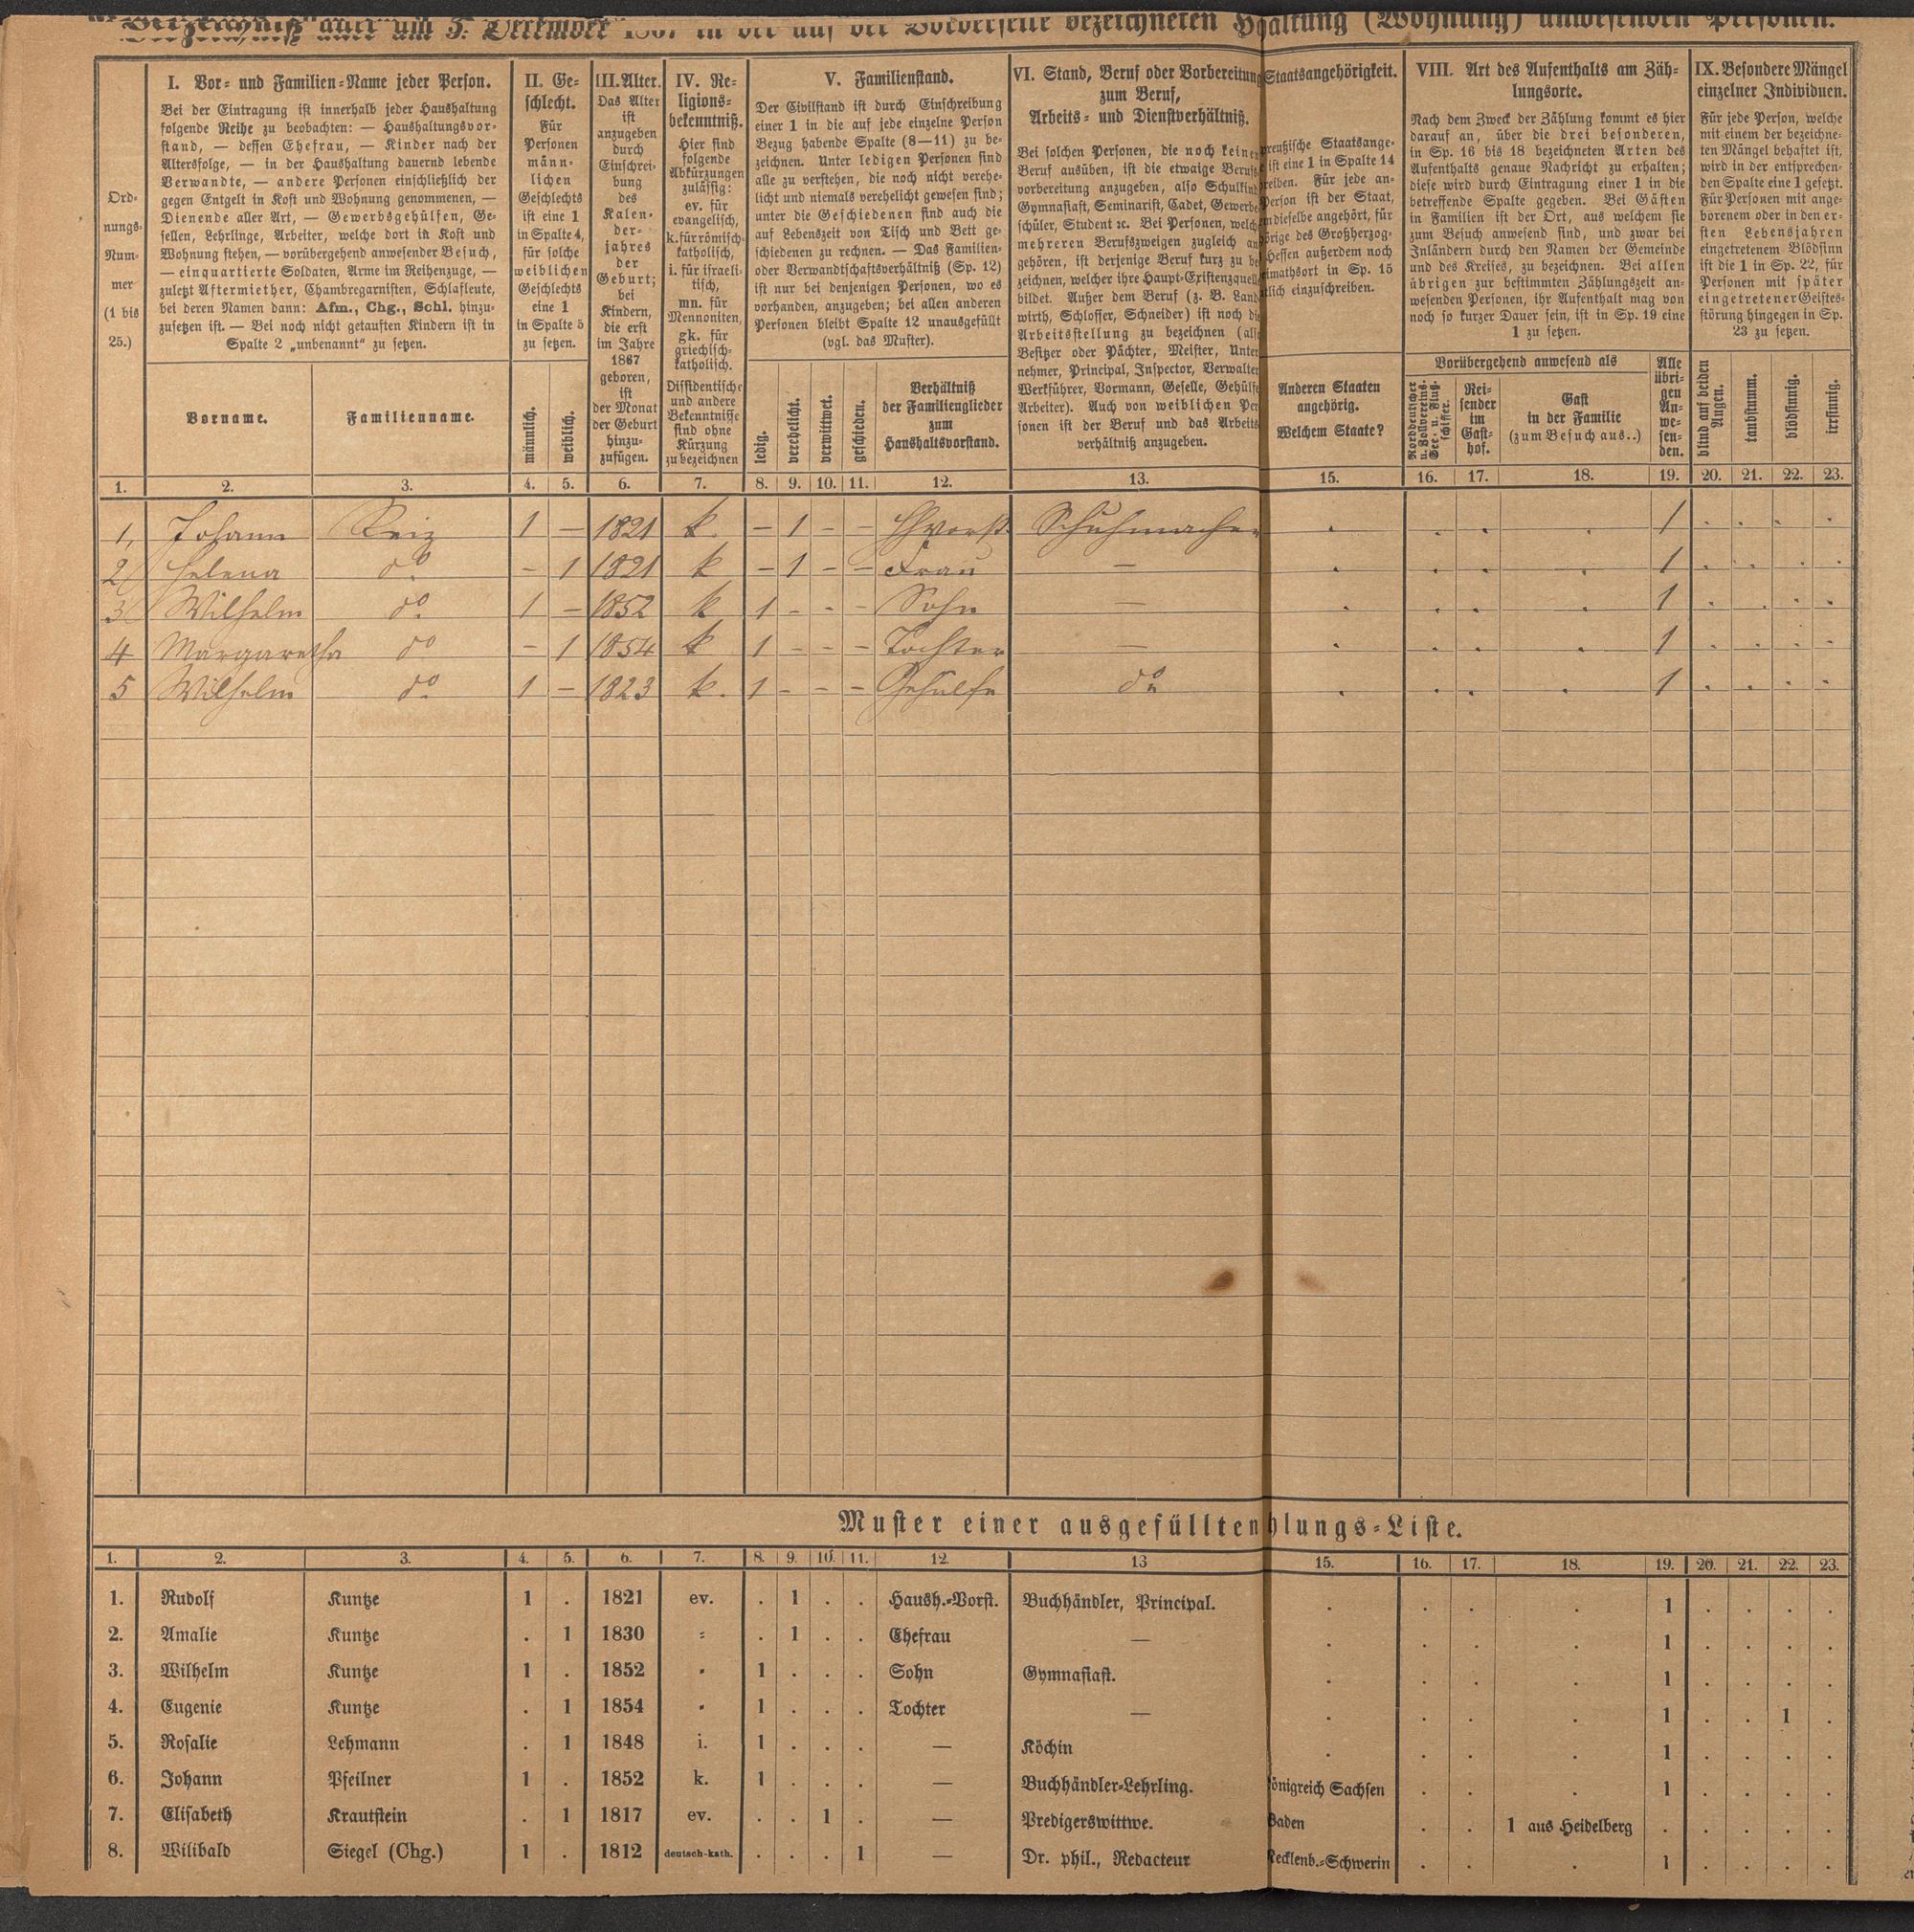 Verzeichniß aller am 3. December 1867 in der auf der Vorderseite bezeichneten Hhaltung (Wohnung) anwesenden Personen.
Ord-
nungs-
Num-
mer
(1 bis
25.)
I. Vor- und Familien-Name jeder Person.
Bei der Eintragung ist innerhalb jeder Haushaltung
folgende Reihe zu beobachten: — Haushaltungsvor-
stand, — dessen Ehefrau, — Kinder nach der
Altersfolge, — in der Haushaltung dauernd lebende
Verwandte, — andere Personen einschließlich der
gegen Entgelt in Kost und Wohnung genommenen, —
Dienende aller Art, — Gewerbsgehülfen, Ge-
sellen, Lehrlinge, Arbeiter, welche dort in Kost und
Wohnung stehen, — vorübergehend anwesender Besuch,
— einquartierte Soldaten, Arme im Reihenzuge, —
zuletzt Aftermiether, Chambregarnisten, Schlafleute,
bei deren Namen dann: Afm., Chg., Schl. hinzu-
zusetzen ist. — Bei noch nicht getauften Kindern ist in
Spalte 2 „unbenannt“ zu setzen.
Vorname.
Familienname.
II. Ge-
schlecht.
Für
Personen
männ-
lichen
Geschlechts
ist eine 1
in Spalte 4,
für solche
weiblichen
Geschlechts
eine 1
in Spalte 5
zu setzen.
männlich.
weiblich.
III. Alter.
Das Alter
ist
anzugeben
durch
Einschrei-
bung
des
Kalen-
der-
jahres
der
Geburt;
bei
Kindern,
die erst
im Jahre
1867
geboren,
ist
der Monat
der Geburt
hinzu-
zufügen.
IV. Re-
ligions-
bekenntniß.
Hier sind
folgende
Abkürzungen
zulässig:
ev. für
evangelisch,
k. für römisch-
katholisch,
i. für israeli-
tisch,
mn. für
Mennoniten,
gk. für
griechisch-
katholisch.
Dissidentische
und andere
Bekenntnisse
sind ohne
Kürzung
zu bezeichnen
V. Familienstand.
Der Civilstand ist durch Einschreibung
einer 1 in die auf jede einzelne Person
Bezug habende Spalte (8—11) zu be-
zeichnen. Unter ledigen Personen sind
alle zu verstehen, die noch nicht verehe-
licht und niemals verehelicht gewesen sind;
unter die Geschiedenen sind auch die
auf Lebenszeit von Tisch und Bett ge-
schiedenen zu rechnen. — Das Familien-
oder Verwandtschaftsverhältniß (Sp. 12)
ist nur bei denjenigen Personen, wo es
vorhanden, anzugeben; bei allen anderen
Personen bleibt Spalte 12 unausgefüllt
(vgl. das Muster).
ledig.
verehelicht.
verwittwet.
geschieden.
Verhältniß
der Familienglieder
zum
Haushaltsvorstand.
VI. Stand, Beruf oder Vorbereitung
zum Beruf,
Arbeits- und Dienstverhältniß.
Bei solchen Personen, die noch keinen
Beruf ausüben, ist die etwaige Berufs-
vorbereitung anzugeben, also Schulkind
Gymnasiast, Seminarist, Cadet, Gewerbe-
schüler, Student ꝛc. Bei Personen, welche
mehreren Berufszweigen zugleich an-
gehören, ist derjenige Beruf kurz zu be-
zeichnen, welcher ihre Haupt-Existenzquelle
bildet. Außer dem Beruf (z. B. Land-
wirth, Schlosser, Schneider) ist noch die
Arbeitsstellung zu bezeichnen (als
Besitzer oder Pächter, Meister, Unter-
nehmer, Principal, Inspector, Verwalter
Werkführer, Vormann, Geselle, Gehülfe
Arbeiter). Auch von weiblichen Per-
sonen ist der Beruf und das Arbeits-
verhältniß anzugeben.
Staatsangehörigkeit.
preußische Staatsange-
ist eine 1 in Spalte 14
reiben. Für jede an-
Person ist der Staat,
dieselbe angehört, für
örige des Großherzog-
Hessen außerdem noch
imathsort in Sp. 15
tlich einzuschreiben.
Anderen Staaten
angehörig.
Welchem Staate?
VIII. Art des Aufenthalts am Zäh-
lungsorte.
Nach dem Zweck der Zählung kommt es hier
darauf an, über die drei besonderen,
in Sp. 16 bis 18 bezeichneten Arten des
Aufenthalts genaue Nachricht zu erhalten;
diese wird durch Eintragung einer 1 in die
betreffende Spalte gegeben. Bei Gästen
in Familien ist der Ort, aus welchem sie
zum Besuch anwesend sind, und zwar bei
Inländern durch den Namen der Gemeinde
und des Kreises, zu bezeichnen. Bei allen
übrigen zur bestimmten Zählungszeit an-
wesenden Personen, ihr Aufenthalt mag von
noch so kurzer Dauer sein, ist in Sp. 19 eine
1 zu setzen.
Vorübergehend anwesend als
Norddeutscher
u. Zollvereins-
See- u. Fluß-
schiffer.
Rei-
sender
im
Gast-
hof.
Gast
in der Familie
(zum Besuch aus..)
Alle
übri-
gen
An-
we-
sen-
den.
IX. Besondere Mängel
einzelner Individuen.
Für jede Person, welche
mit einem der bezeichne-
ten Mängel behaftet ist,
wird in der entsprechen-
den Spalte eine 1 gesetzt.
Für Personen mit ange-
borenem oder in den er-
sten Lebensjahren
eingetretenem Blödsinn
ist die 1 in Sp. 22, für
Personen mit später
eingetretener Geistes-
störung hingegen in Sp.
23 zu setzen.
blind auf beiden
Augen.
taubstumm.
blödsinnig.
irrsinnig.
1. 2. 3. 4. 5. 6. 7. 8. 9. 10. 11. 12. 13. 15. 16. 17. 18. 19. 20. 21. 22. 23.
1, Johann Reiz 1 — 1821 k. — 1 - - Hvorst Schuhmacher . . . . 1 . . . .
2 Helena do — 1 1821 k — 1 - - Frau — . . . . 1 . . . .
3 Wilhelm do 1 — 1852 k 1 - - - Sohn — . . . . 1 . . . .
4 Margaretha do — 1 1854 k 1 - - - Tochter — . . . . 1 . . . .
5 Wilhelm do 1 — 1823 k. 1 - - - Gehülfe do . . . . 1 . . . .
Muster einer ausgefüllten hlungs-Liste.
1. 2. 3. 4. 5. 6. 7. 8. 9. 10. 11. 12. 13 15. 16. 17. 18. 19. 20. 21. 22. 23.
1. Rudolf Kuntze 1 . 1821 ev. . 1 . . Haush.-Vorst. Buchhändler, Principal. . . . . 1 . . . .
2. Amalie Kuntze . 1 1830 = . 1 . . Ehefrau — . . . . 1 . . . .
3. Wilhelm Kuntze 1 . 1852 " 1 . . . Sohn Gymnasiast. . . . . 1 . . . .
4. Eugenie Kuntze . 1 1854 " 1 . . . Tochter — . . . . 1 . . 1 .
5. Rosalie Lehmann . 1 1848 i. 1 . . . — Köchin . . . . 1 . . . .
6. Johann Pfeilner 1 . 1852 k. 1 . . . — Buchhändler-Lehrling. önigreich Sachsen . . . 1 . . . .
7. Elisabeth Krautstein . 1 1817 ev. . . 1 . — Predigerswittwe. Baden . . 1 aus Heidelberg . . . . .
8. Wilibald Siegel (Chg.) 1 . 1812 deutsch-kath. . . . 1 — Dr. phil., Redacteur Mecklenb.-Schwerin . . . 1 . . . .